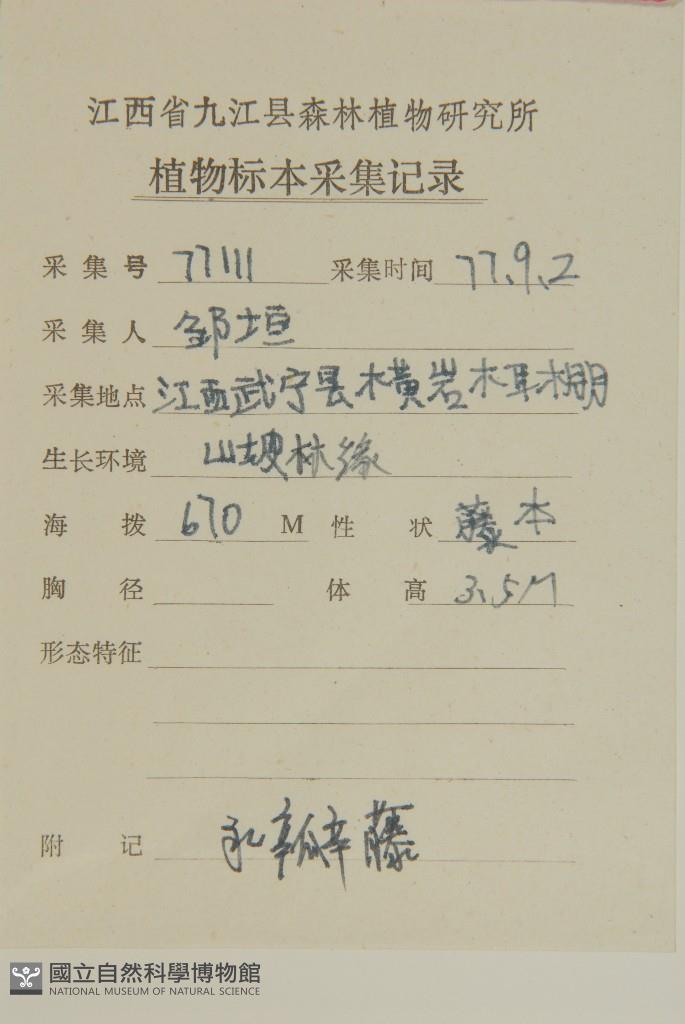 江西省九江县森林植物研究所
植物标本采集记录
采集号 77111 采集时间 77.9.2
采集人 邹垣
采集地点 江西武宁县横岩木耳棚
生长环境 山坡林缘
海拨 670 M 性状 藤本
胸径 体高 3.5M
形态特征
附记 瓣藤
國立自然科學博物館
NATIONAL MUSEUM OF NATURAL SCIENCE